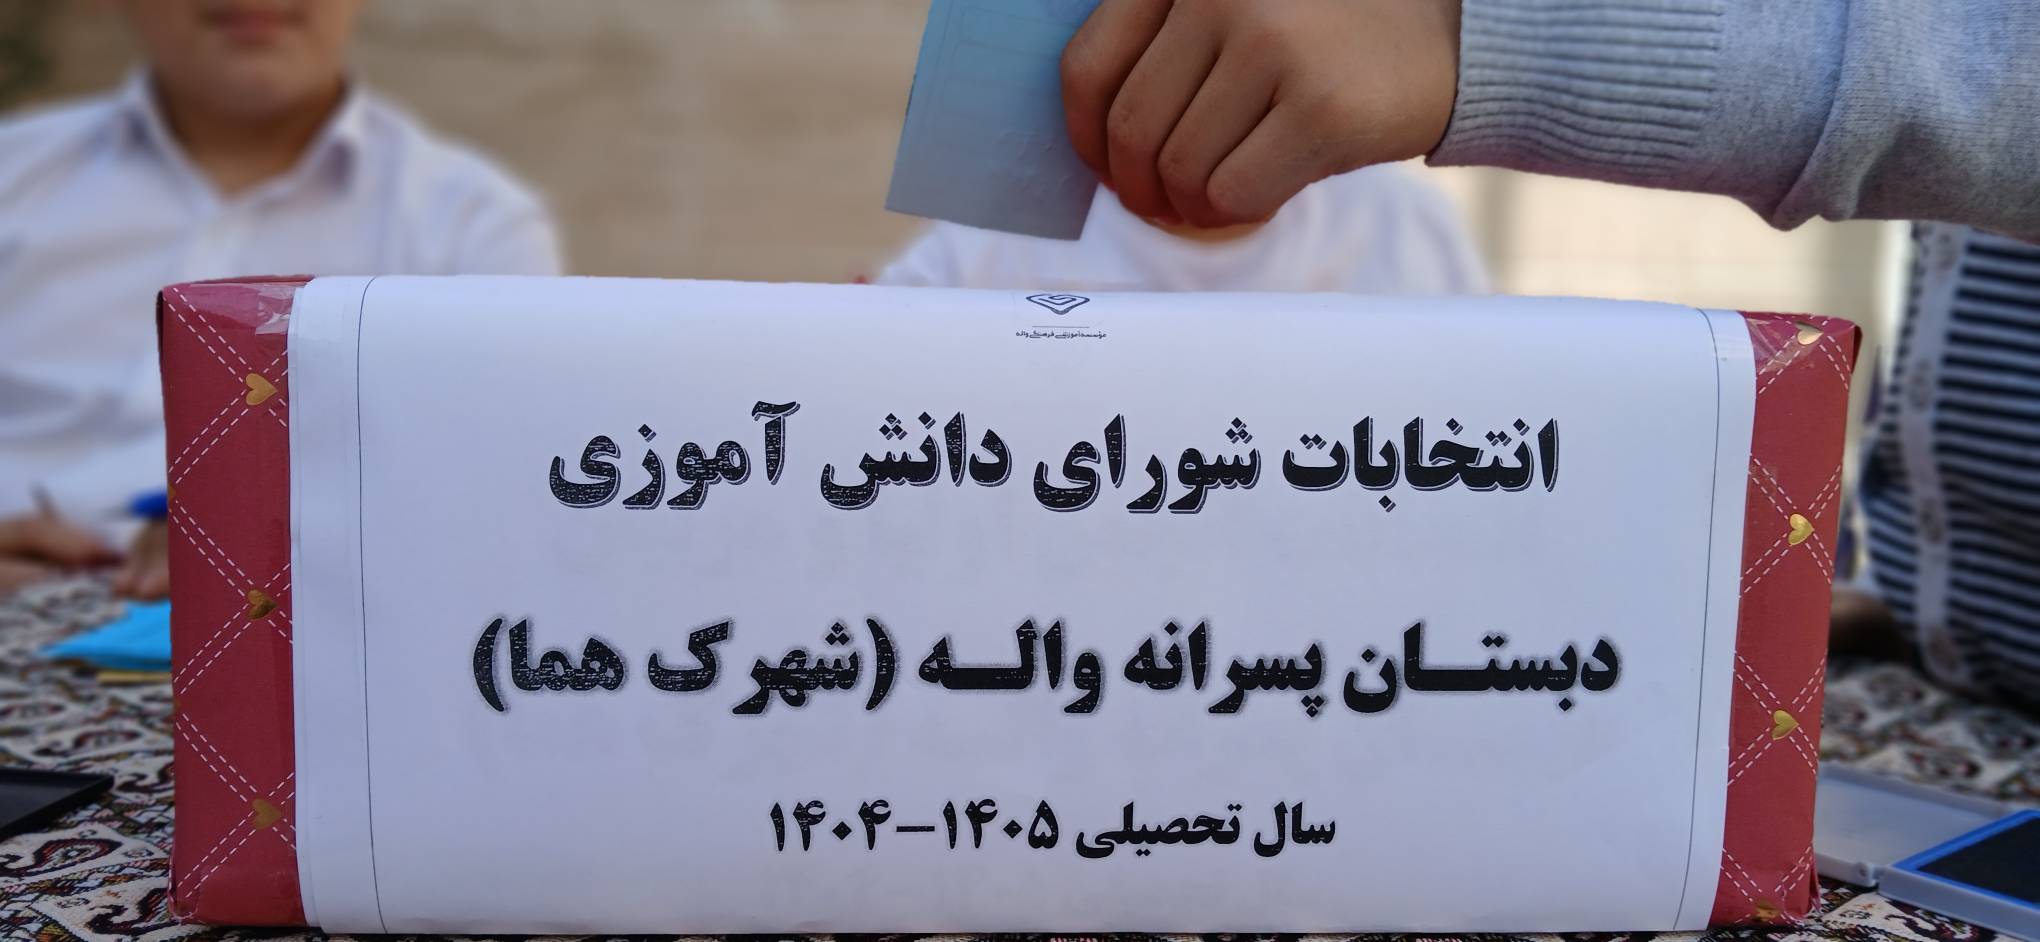 مؤسسه آموزشی فرهنگی واله
انتخابات شورای دانش آموزی
دبستان پسرانه واله (شهرک هما)
سال تحصیلی ۱۴۰۵-۱۴۰۴